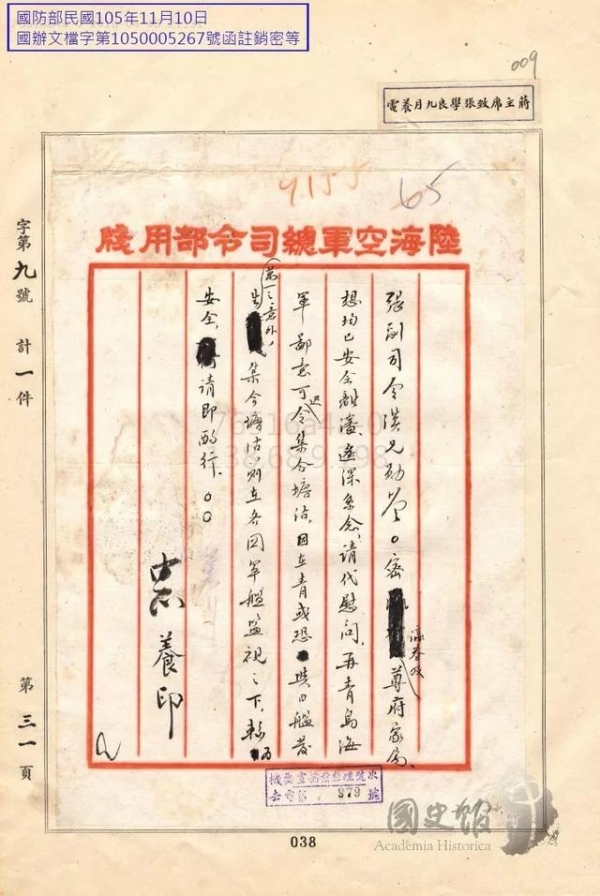 國防部民國105年11月10日
國辦文檔字第1050005267號函註銷密等
009
蔣主席致張學良九月養電
4155
65
陸海空軍總司令部用牋
張副司令漢兄勛鑒。密 尊府家屬
想均已安全離瀋,遙深系念,請代慰問。再青島海
軍鄙意可令集合塘沽,因在青或恐與日艦發
生萬一之意外,集合塘沽,則在各國軍艦監視之下,較為
安全,請即酌行。○○
中正養印
字第九號 計一件
第三一頁
979
038
國史館
Academia Historica